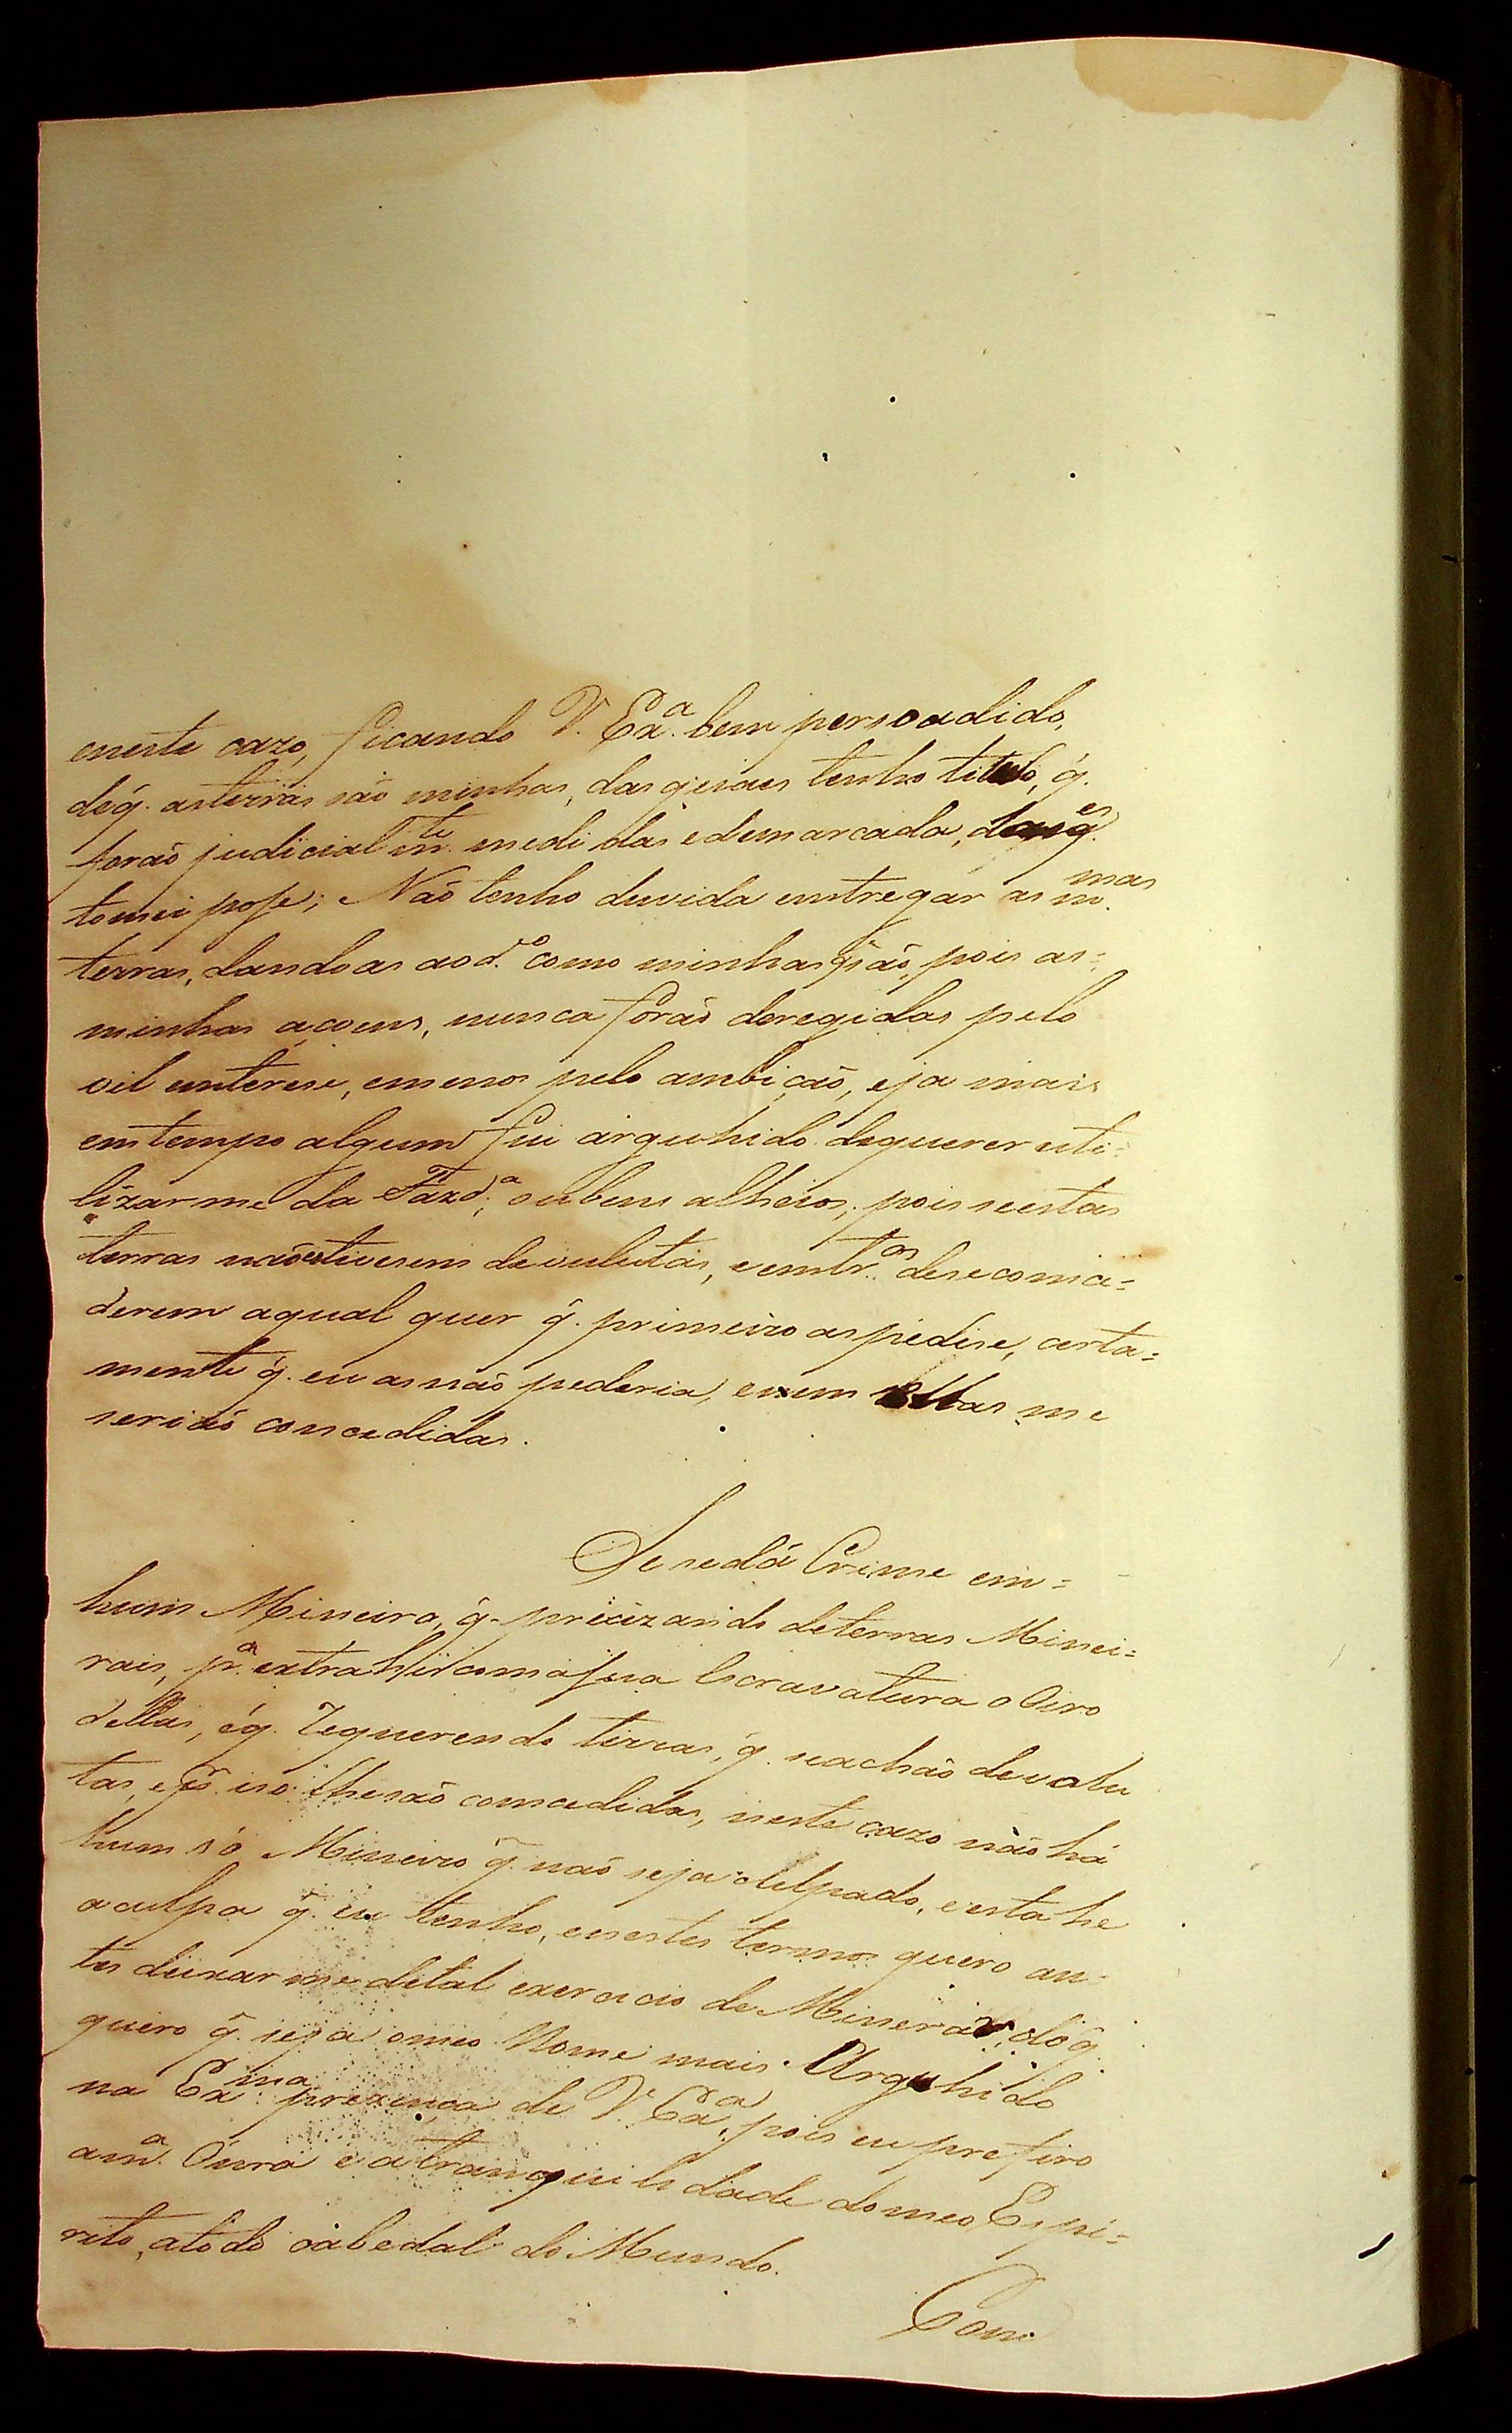 eneste cazo, ficando V. Exª. bem persoadido,
deq̃. asterras são minhas, das quaes tenho titulo, q̃.
forão judicialmte. medidas edemarcada, dasq̃es.
tomei posse; Não tenho duvida entregar as mmas.
terras, dandoas aod.º como minhas q̃ são, pois as=
minhas açoens, nunca forão deregidas pelo
vil enterese, emenos pelo ambição, eja mais
emtempo algum fui arguhido dequerer uti=
lizarme da Fazd.ª, oubens alheios, pois seestas
terras nãoestivesem devulutas, eemtr.os desecomce=
derem aqual quer q̃. primeiro aspedise, certa=
mente q̃. eu asnão pederia, enem ellas me
serião concedidas.
Se sedá Crime em=
hum Mineiro, q̃. precizando deterras Minei=
rais, pr.ª extrahir comasua Escravatura o Oiro
dellas, éq̃. Requerendo terras, q̃. seachão devalu
tas, epr. iso lhesão comcedidas, neste cazo não há
hum só Mineiro q̃. não seja culpado, eesta he
aculpa q̃. eu tenho, enestes termos quero an=
tes deixarme detal exercicio de Minerar, doq̃.
quero q̃. seja omeo Nome mais Arguhido
na Exma. prezença de V. Exª., pois eu prefiro
am.ª Ónra e atranquilidade domeo Espi=
rito, atodo cabedal do Mundo.
Com